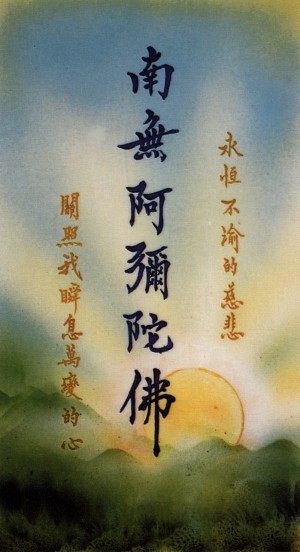 永恆不渝的慈悲
南無阿彌陀佛
關照我瞬息萬變的心